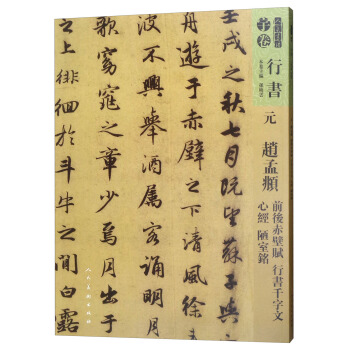 子卷
行書
元
趙孟頫
前後赤壁賦 行書千字文
心經 陋室銘
壬戌之秋七月既望蘇子與
舟遊于赤壁之下清風徐
波不興舉酒屬客誦明月
歌窈窕之章少焉月出于
之上徘徊於斗牛之間白露
人民美術出版社